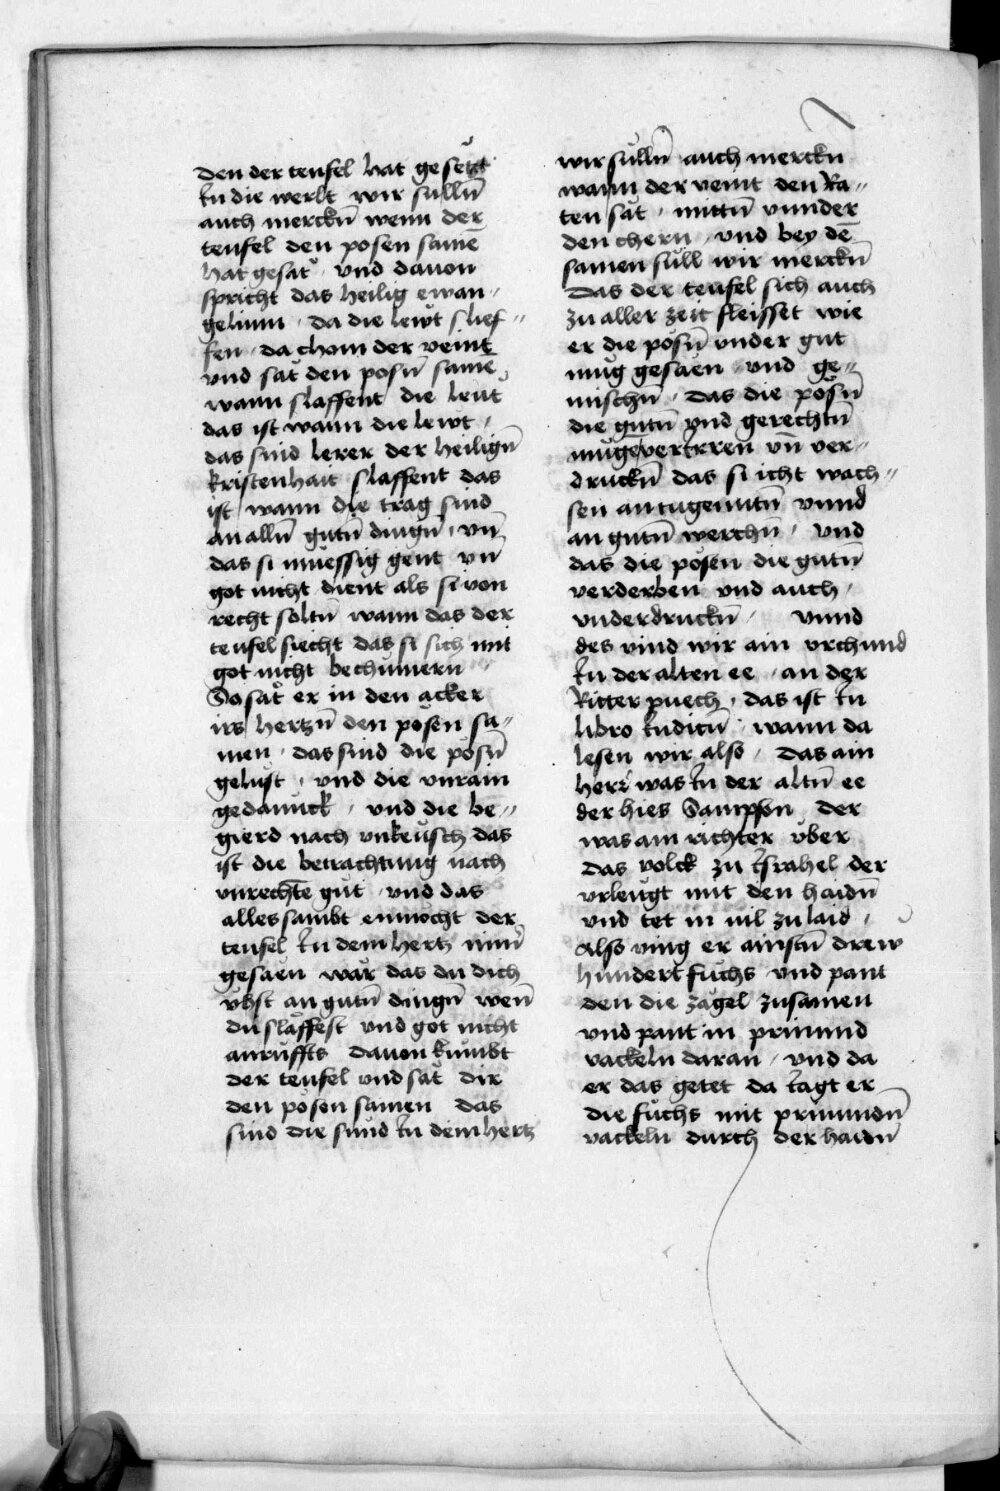 den der teufel hat gesetzt
In die werlt wir sulln̄
auch merckn̄ wenn der
teufel den posen samē
hat gesät · vnd dauon
spricht das heilig ewan-
gelium · da die lewt slief-
fen · da cham der veint
vnd sät den posn̄ samē
wann slaffent die leut
das ist wann die lewt ·
das sind lerer der heilign̄
kristenhait slaffent das
ist wann die trag sind
an alln̄ gutn̄ dingn̄ · vn̄
das si muessig gent vn̄
got nicht dient als si von
recht soltn̄ wann das der
teufel siecht das si sich mit
got nicht bechumern
So sät er in den acker
irs hertzn̄ den pösen sa-
men · das sind die pösn̄
gelust · vnd die vnrain
gedannck · vnd die be-
gierd nach vnkeusch das
ist die betrachtung nach
vnrechtē gut · vnd das
alles sambt enmocht der
teufel In dem hertz nim̄
gesaen wär das du dich
vbst an gutn̄ dingn̄ wen̄
du slaffest vnd got nicht
anruffts dauon kumbt
der teufel vnd sät dir
den pösen samen das
sind die sund In dem hertz
wir sulln̄ auch merckn
wann der veint den Ra-
ten sät · mittn̄ vnnder
den chern · vnd bey dē
samen sull wir merckn̄
Das der teufel sich auch
zu aller zeit fleisset wie
er die pösn̄ vnder gut
mug gesäen · vnd ge-
mischn̄ · das die pösn̄
die gutn̄ vnd gerechtn̄
muge verirren vn̄ ver-
druckn̄ das si icht wach-
sen an tugenntn̄ vnnd
an gutn̄ werchn̄ · vnd
das die pösen die gutn̄
verderben vnd auch ·
vnderdruckn̄ · vnnd
des vind wir ain vrchund
In der alten ee · an der
Ritter puech · das ist In
libro Iudicū · wann da
lesen wir also · Das ain
herr was In der altn̄ ee
der hies Sampson der
was ain richter vber
das volck zu Israhel der
vrleugt mit den haidn̄
vnd tet in vil zu laid ·
Also ving er ainstn̄ drew
hundert fuchs · vnd pant
den die zägel zusamen
vnd pant in prinnund
vackeln daran · vnd da
er das getet da Iagt er
die fuchs mit prinnundn̄
vackeln durch der haidn̄